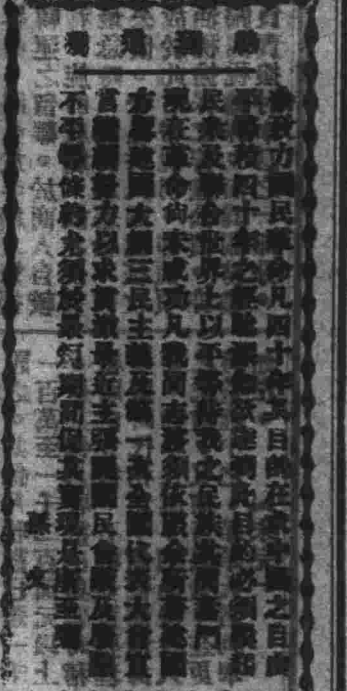 總理遺囑
余致力國民革命凡四十年其目的在求中國之自由
平等積四十年之經驗深知欲達到此目的必須喚起
民衆及聯合世界上以平等待我之民族共同奮鬥
現在革命尚未成功凡我同志務須依照余所著建國
方略建國大綱三民主義及第一次全國代表大會宣
言繼續努力以求貫徹最近主張開國民會議及廢除
不平等條約尤須於最短期間促其實現是所至囑
孫文